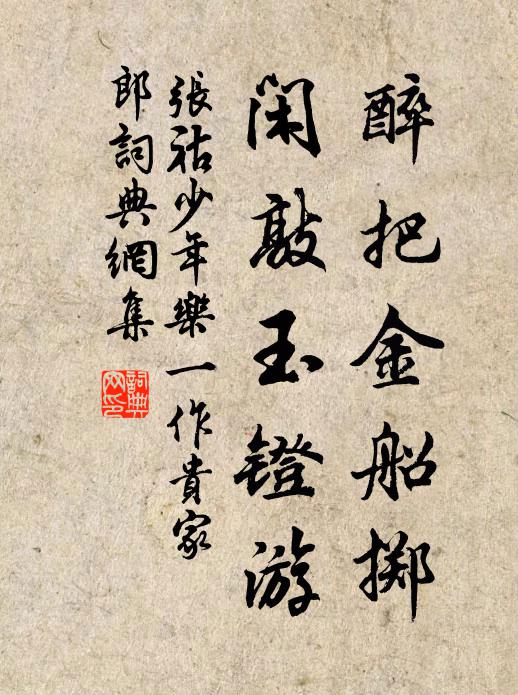 醉把金船掷
闲敲玉镫游
張祜少年樂一作貴家
郎詞典網集
詞典
网印